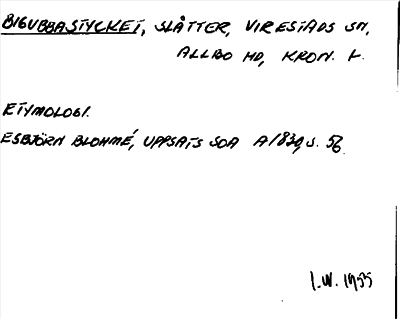 BIGUBBASTYCKET, SLÅTTER, VIRESTADS SN,
ALLBO HD, KRON. L.
ETYMOLOGI.
ESBJÖRN BLOHMÉ, UPPSATS SOA A1830, S. 56.
I.W. 1955